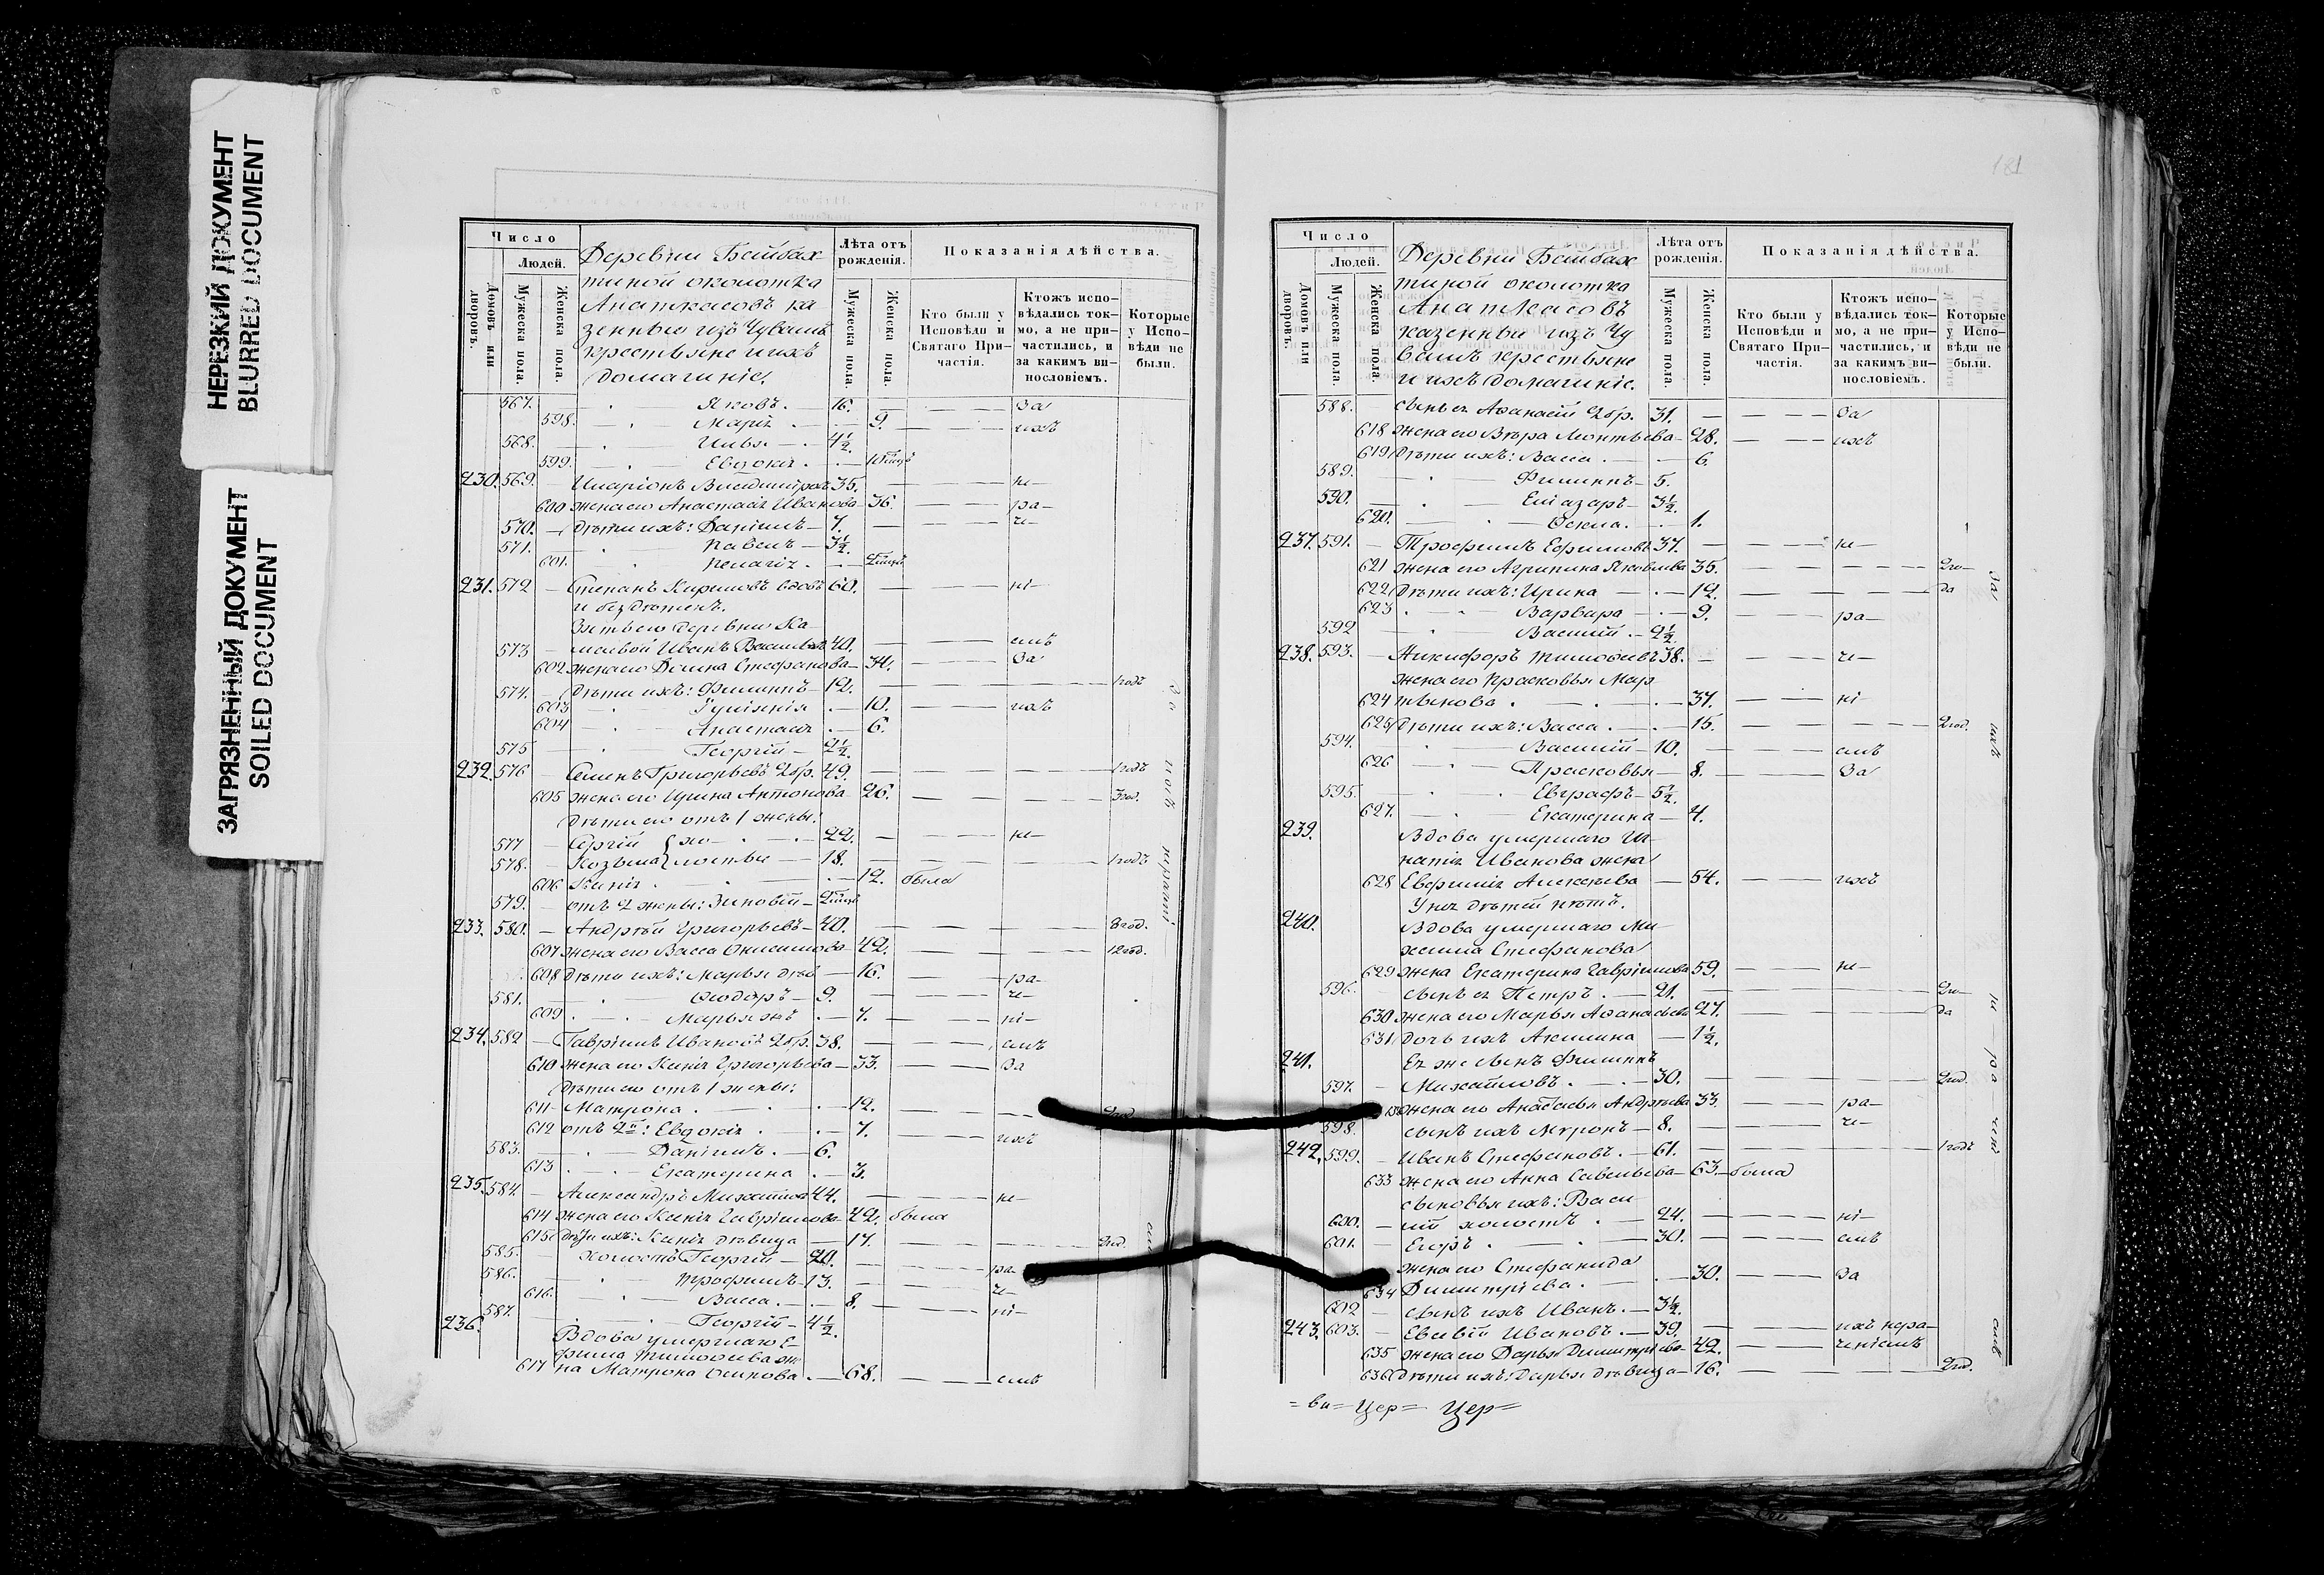 НЕРЕЗКИЙ ДОКУМЕНТ
BLURRED DOCUMENT
ЗАГРЯЗНЕННЫЙ ДОКУМЕНТ
SOILED DOCUMENT
Число
Людей.
Домовъ или дворовъ.
Мужеска пола.
Женска пола.
Деревни Бейбах
тиной околотка
Анаткасовъ ка
зенные изъ Чувашъ
крестьяне и ихъ
домашніе.
Лѣта отъ рожденія.
Мужеска пола.
Женска пола.
Показанія дѣйства.
Кто были у Исповѣди и Святаго Причастія.
Ктожъ исповѣдались токмо, а не причастились, и за какимъ винословіемъ.
Которые у Исповѣди не были.
567. Яковъ. 16. За
598. Марія 9. ихъ
568. Илья 4½.
599. Евдокія
230. 569. Иларіонъ 35. не
600 жена его Анастасія Иванова 36. ра
570. дѣти ихъ: Даніилъ 7. че
571. Павелъ 3½.
601. Пелагія
231. 572 Степанъ вдовъ 60. ні
и бездѣтенъ.
Зять его деревни Ка
573 Иванъ Васильевъ 40. емъ
602 жена его Домна Стефанова 34. За
574. дѣти ихъ: Филиппъ 12. 1годъ
603 Іуліянія 10. ихъ
604 Анастасія 6.
575 Георгій 2½
232. 576 Семенъ Григорьевъ 2бр. 49. 1годъ
605 жена его Ирина Антонова 26. 3год.
дѣти его отъ 1 жены:
577 Сергій 22. не
578. Козьма холосты 18. 1годъ
606 Ксенія 12. была
579. отъ 2 жены: Зиновій
233. 580. Андрей Григорьевъ 40. 8год.
607 жена его Васса Онисимова 42. 12год.
608 дѣти ихъ: Марья дѣв 16. ра
581. Ѳеодоръ 9. че
609 Марья жъ 7. ні
234. 582 Гавріилъ Ивановъ 2бр. 38. емъ
610 жена его Ксенія Григорьева 33. За
дѣти его отъ 1 жены:
611 Матрона 12. 2год.
612 отъ 2й: Евдокія 7. ихъ
583. Даніилъ. 6.
613 Екатерина 3.
235. 584. Александръ Михайловъ 44. не
614 жена его Ксенія Гавріилова 42. была
615 дѣти ихъ: Ксенія дѣвица 17. 2год.
585. холостъ Георгій 20. ра
586. Трофимъ 13. че
616. Васса. 8. ні
587. Георгій 4½.
236. Вдова умершаго Е-
фима Тимоѳеева же
617 на Матрона Осипова. 68. емъ
181
Число
Людей.
Домовъ или дворовъ.
Мужеска пола.
Женска пола.
Деревни Бейбах
тиной околотка
Анаткасовъ
казенные изъ Чу
вашъ крестьяне
и ихъ домашніе.
Лѣта отъ рожденія.
Мужеска пола.
Женска пола.
Показанія дѣйства.
Кто были у Исповѣди и Святаго Причастія.
Ктожъ исповѣдались токмо, а не причастились, и за какимъ винословіемъ.
Которые у Исповѣди не были.
588. сынъ ея Аѳанасій 2бр. 31. За
618 жена его Вѣра Леонтьева 28. ихъ
619 дѣти ихъ: Васса 6.
589. Филиппъ 5.
590. Еліазаръ 3½.
620. Ѳекла. 1.
237. 591. Трофимъ Ефимовъ 37. не
621 жена его Агрипина Яковлева 35. 2го
622 дѣти ихъ: Ирина 12. да
623 Варвара 9. ра
592 Василій 2½
238. 593. Никифоръ Тимоѳеевъ 38. че
жена его Прасковья Мар
624 тынова 37. ні
625 дѣти ихъ: Васса 15. 2год.
594. Василій 10. емъ
626 Прасковья 8. За
595. Евграфъ 5½.
627. Екатерина 4.
239. Вдова умершаго Иг
натія Иванова жена
628 Евфимія Алексѣева 54. ихъ
У нея дѣтей нѣтъ.
240. Вдова умершаго Ми
хаила Стефанова
629 жена Екатерина Гавріилова 59. не
596. сынъ ея Петръ. 21. 2го
630 жена его Марья Аѳанасьева 27. да
631 дочь ихъ Акилина 1½.
241. Ея же сынъ Филиппъ
597. Михайловъ. 30. 2год.
жена его Анастасья Андреева 33. ра
598. сынъ ихъ Миронъ 8. че
242. 599. Иванъ Стефановъ. 61. 1годъ
633 жена его Анна Савельева 63. была
сыновья ихъ: Васи
600. лій холостъ 24. ні
601. Егоръ 30. емъ
жена его Стефанида
634 Димитріева. 30. За
602 сынъ ихъ Иванъ. 3½.
243. 603. Евсевій Ивановъ. 39. ихъ нера
635 жена его Дарья Димитріева 42. ченіемъ
636 дѣти ихъ: Дарья дѣвица 16. 2год.
=ви= Цер= Цер=